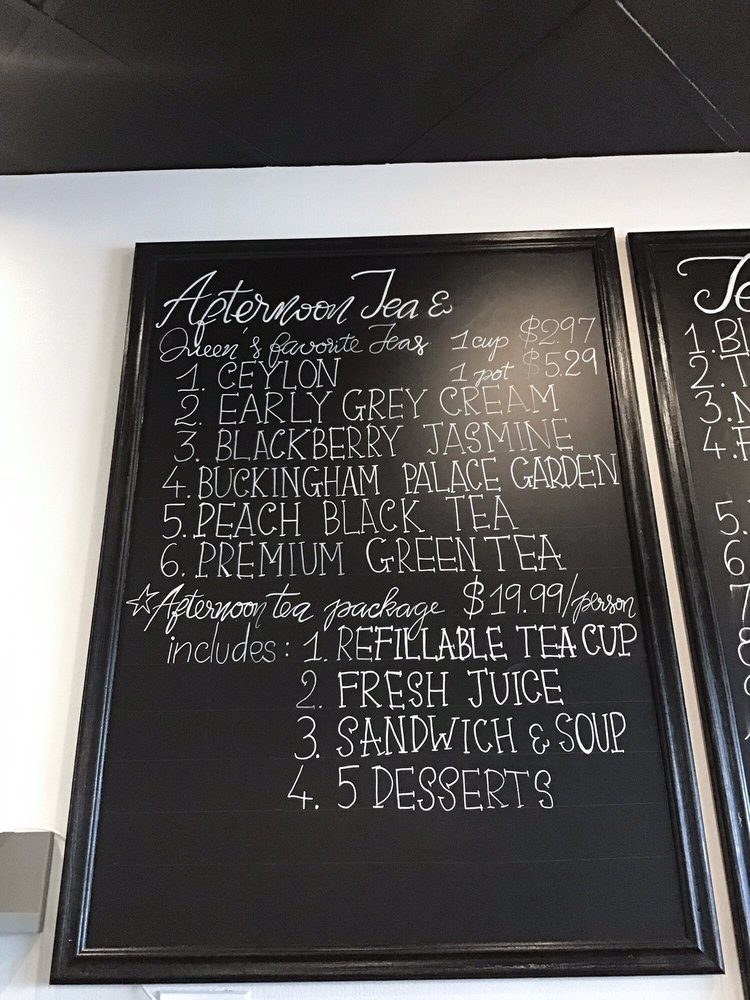 Afternoon Tea &
Queen's favorite Teas 1 cup $2.97
1. CEYLON 1 pot $5.29
2. EARLY GREY CREAM
3. BLACKBERRY JASMINE
4. BUCKINGHAM PALACE GARDEN
5. PEACH BLACK TEA
6. PREMIUM GREEN TEA
☆Afternoon tea package $19.99/person
includes: 1. REFILLABLE TEA CUP
2. FRESH JUICE
3. SANDWICH & SOUP
4. 5 DESSERTS
1.
2.
3.
4.
5.
6
7